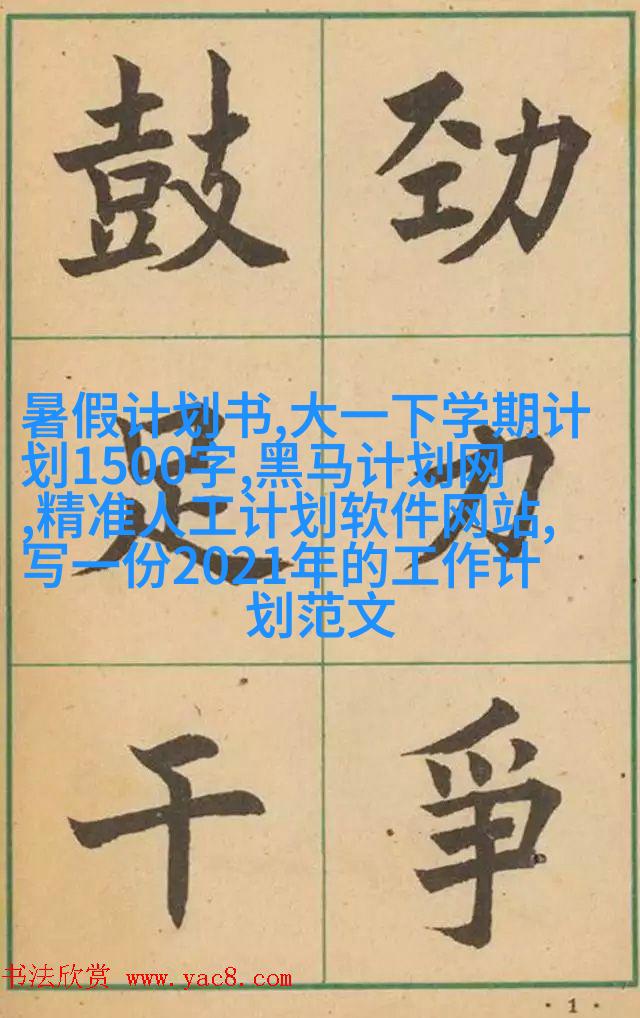 鼓足干
劲力爭
暑假计划书,大一下学期计
划1500字,黑马计划网
,精准人工计划软件网站,
写一份2021年的工作计
划范文
书法欣赏 www.yac8.com
· 1 ·